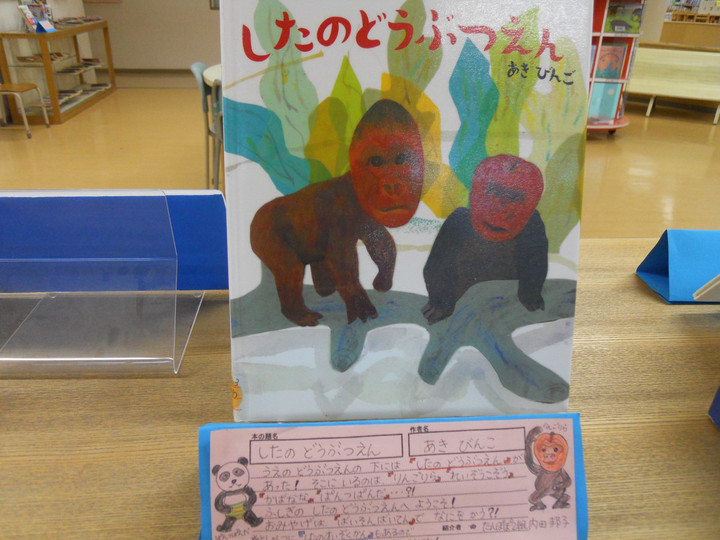 したのどうぶつえん
あき びんご
本の題名
したの どうぶつえん
作者名
あき びんご
うえの どうぶつえんの 下には 「したの どうぶつえん」が
あった! そこに いるのは 「りんごりら」「れいぞうこぞう」
「かばなな」「ぱんつぱんだ」…?!
ふしぎの したの どうぶつえんへ ようこそ!
おみやげは 「ばいそんばいてん」で なにを かう?!
紹介者